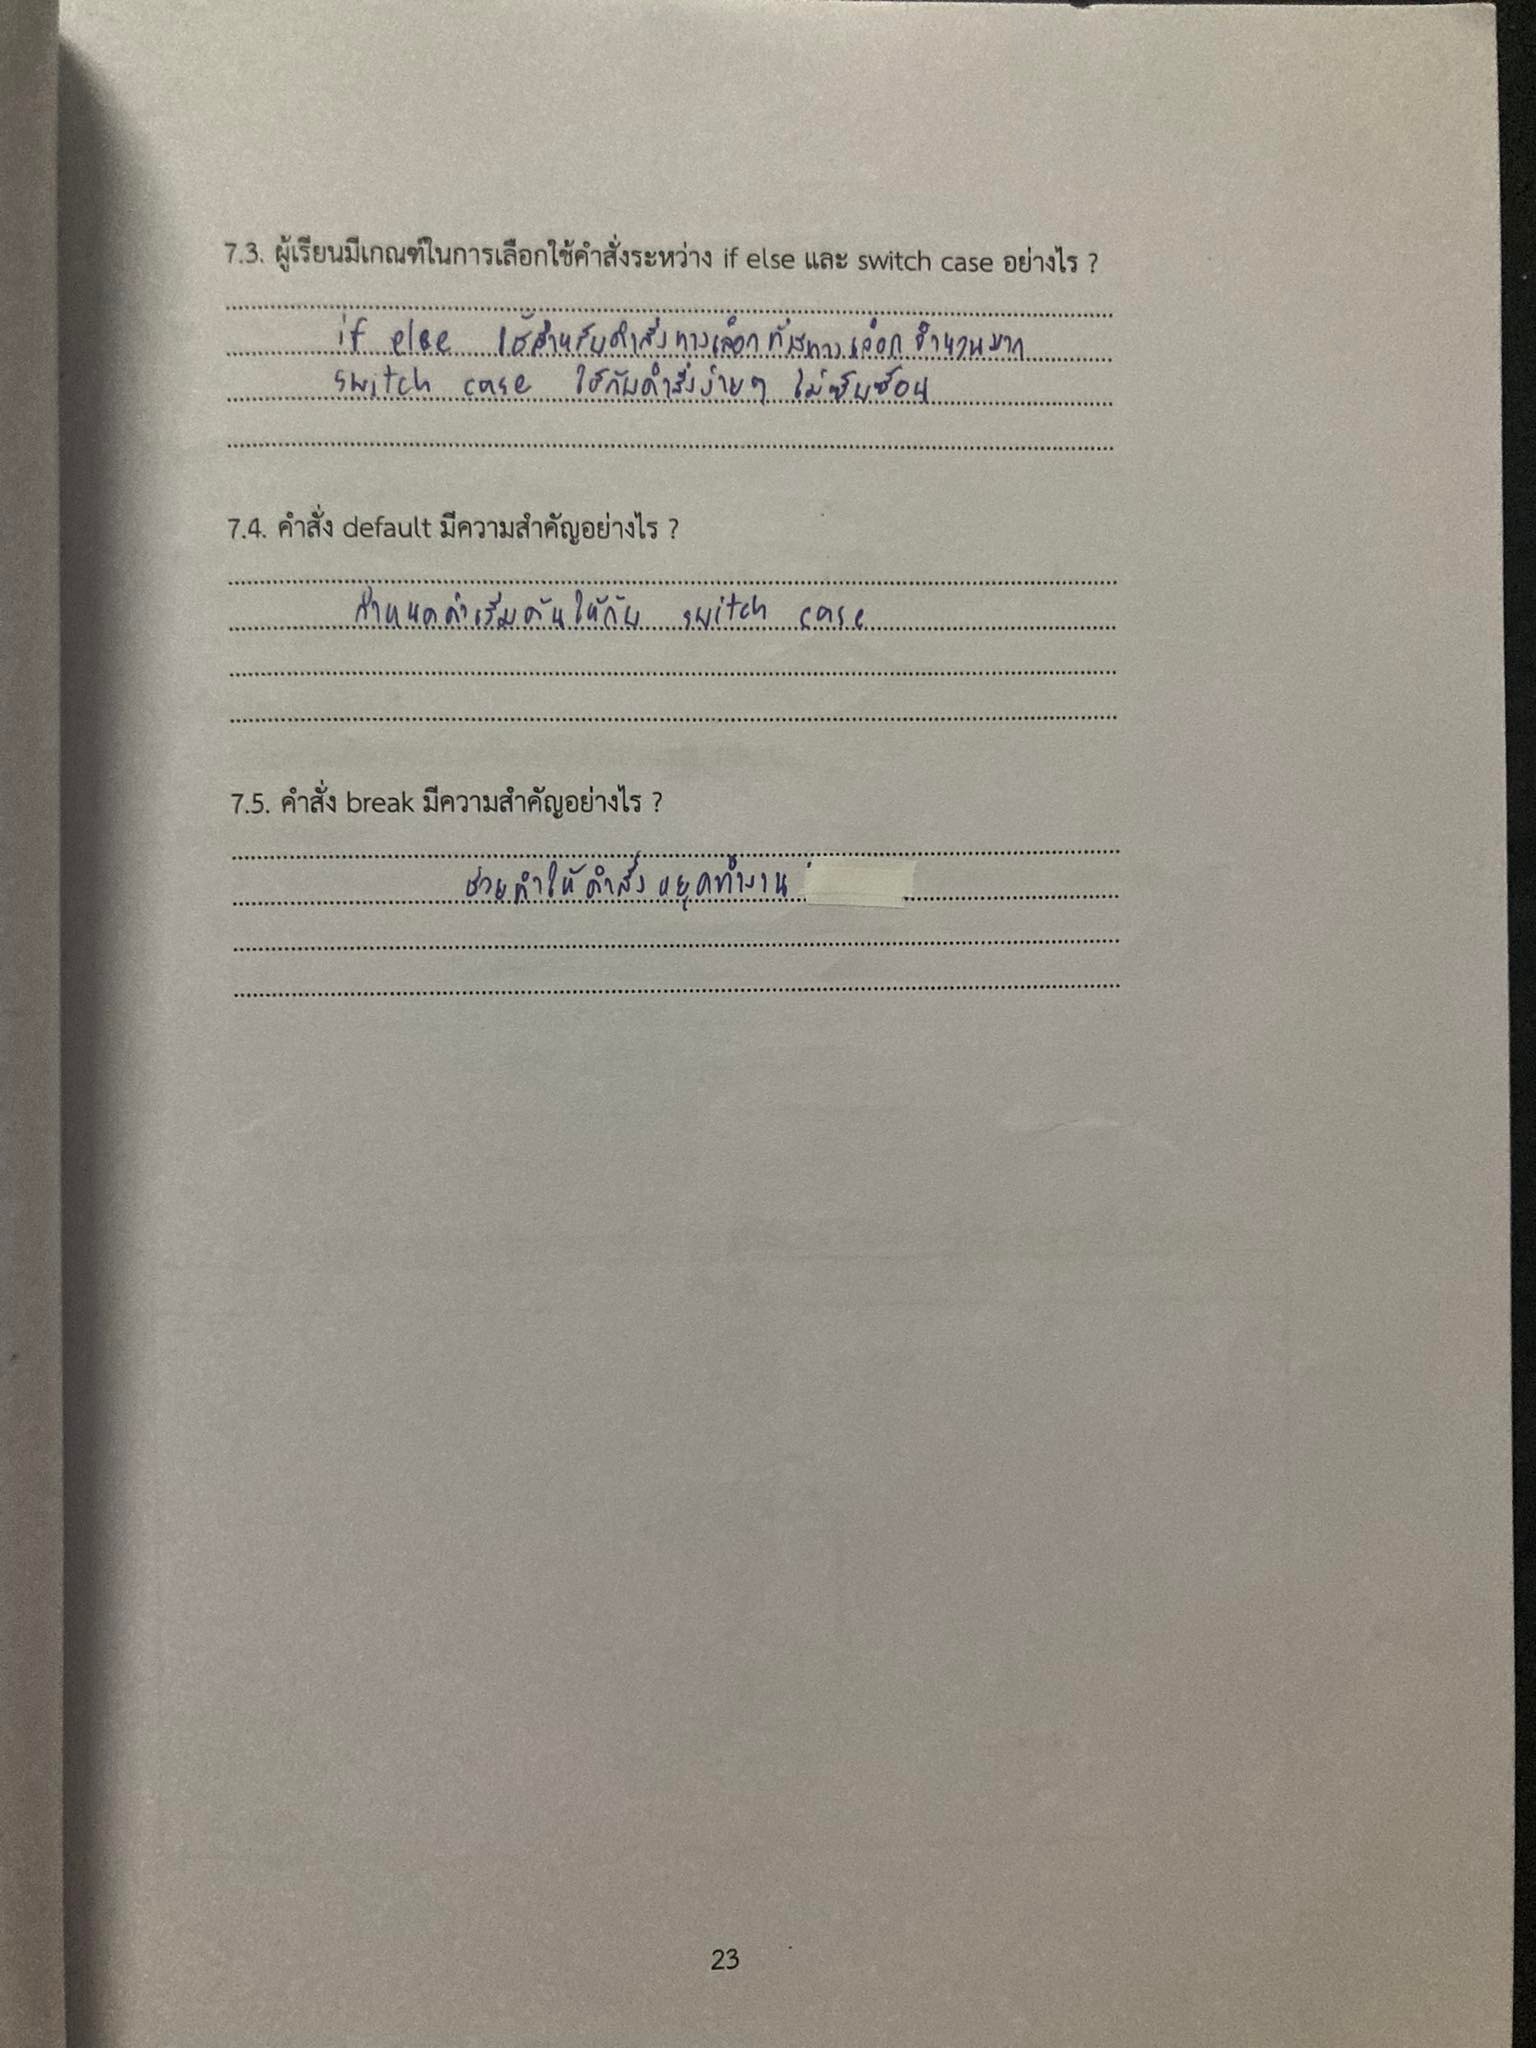 7.3. ผู้เรียนมีเกณฑ์ในการเลือกใช้คำสั่งระหว่าง if else และ switch case อย่างไร ?
if else ใช้สำหรับคำสั่งทางเลือกที่มีทางเลือกจำนวนมาก
switch case ใช้กับคำสั่งง่ายๆ ไม่ซับซ้อน
7.4. คำสั่ง default มีความสำคัญอย่างไร ?
กำหนดค่าเริ่มต้นให้กับ switch case
7.5. คำสั่ง break มีความสำคัญอย่างไร ?
ช่วยทำให้คำสั่งหยุดทำงาน
23